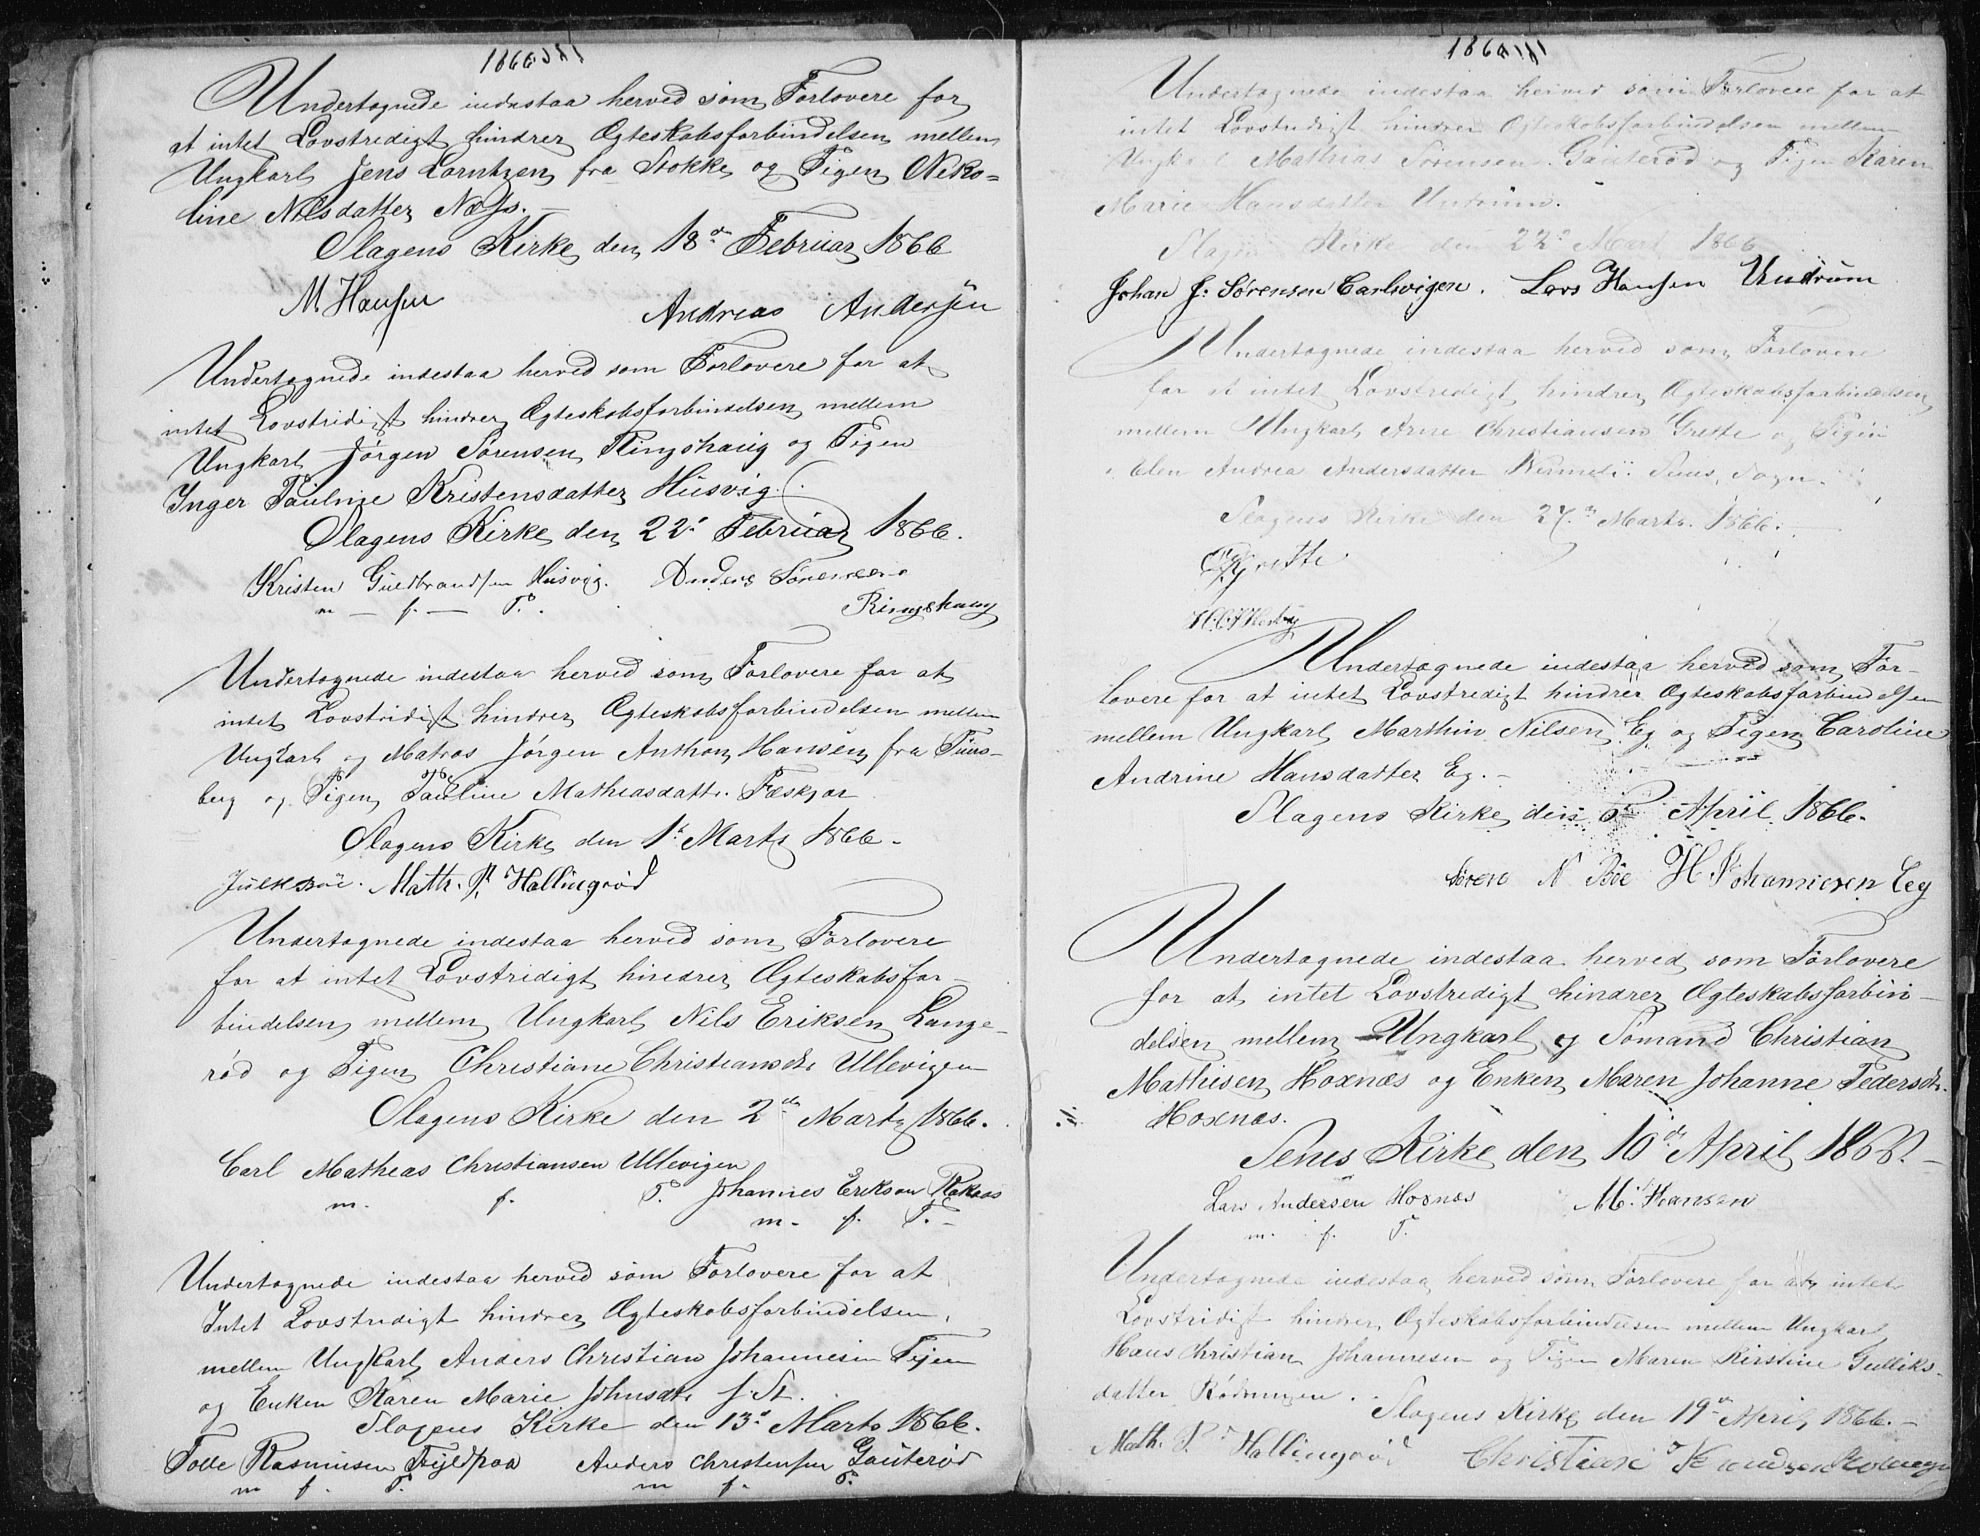 1866
Undertegnede indestaa herved som Forlovere for
at intet Lovstridigt hindrer Ægteskabsforbindelsen mellem
Ungkarl Jens Lorntzen fra Stokke og Pigen Niko-
line Nilsdatter Næss.
Slagens Kirke den 18de Februar 1866
M. Hansen Andreas Andersen
Undertegnede indestaa herved som Forlovere for at
intet Lovstridigt hindrer Ægteskabsforbindelsen mellem
Ungkarl Jørgen Sørensen Ringshaug og Pigen
Inger Pauline Kristensdatter Husvig.
Slagens Kirke den 22d Februar 1866.
Kristen Guldbrandsen Husvig. Anders Sørensen
m — f. — P. Ringshaug
Undertegnede indestaa herved som Forlovere for at
intet Lovstridigt hindrer Ægteskabsforbindelsen mellem
Ungkarl og Matros Jørgen Anthon Hansen fra Tøns-
berg og Pigen Pauline Mathiasdatter
Slagens Kirke den 1st Marts 1866.
Math. P. Hallingrød
Undertegnede indestaa herved som Forlovere
for at intet Lovstridigt hindrer Ægteskabsfor-
bindelsen mellem Ungkarl Nils Eriksen Lange-
rød og Pigen Christiane Christiansdtr Ullevigen
Slagens Kirke den 2den Marts 1866.
Carl Mathias Christiansen Ullevigen
m. f. P. Johannes Erikson
m. f. P.
Undertegnede indestaa herved som Forlovere for at
Intet Lovstridigt hindrer Ægteskabsforbindelsen
mellem Ungkarl Anders Christian Johannesen Fejen
og Enken Karen Marie Johnsdtr
Slagens Kirke den 13d Marts 1866.
Rasmusen Anders Christensen Gauterød
m f. P. m f. P.
1866
Undertegnede indestaa herved som Forlovere for at
intet Lovstridigt hindrer Ægteskabsforbindelsen mellem
Mathias Sørensen Gauterød og Pigen Karen
Marie Hansdatter Undrum.
Slagens Kirke den 22d Marts 1866
Johan J. Sørensen Carlsvigen. Lars Hansen Undrum
Undertegnede indestaa herved som Forlovere
for at intet Lovstridigt hindrer Ægteskabsforbindelsen
mellem Ungkarl Arne Christiansen Grette og Pigen
Elen Andrea Andersdatter i Sems Sogn.
Slagens Kirke den 27d Marts 1866.
Grette
Undertegnede indestaa herved som For-
lovere for at intet Lovstridigt hindrer Ægteskabsforbindelsen
mellem Ungkarl Marthin Nilsen Eg og Pigen Caroline
Andrine Hansdatter Eg.
Slagens Kirke den 6te April 1866.
Søren N Bøe H Johannesen Eeg
Undertegnede indestaa herved som Forlovere
for at intet Lovstridigt hindrer Ægteskabsforbin-
delsen mellem Ungkarl og Sømand Christian
Mathisen Hoxnæs og Enken Maren Johanne Pedersdtr.
Hoxnæs.
Sems Kirke den 10de April 1866.
Lars Andersen Hoxnæs M. Hansen
m. f. P.
Undertegnede indestaa herved som Forlovere for at intet
Lovstridigt hindrer Ægteskabsforbindelsen mellem Ungkarl
Hans Christian Johannesen og Pigen Maren Kirstine Gulliks-
datter Rødningen.
Slagens Kirke den 19de April 1866.
Math. P. Hallingrød Christian Knudsen